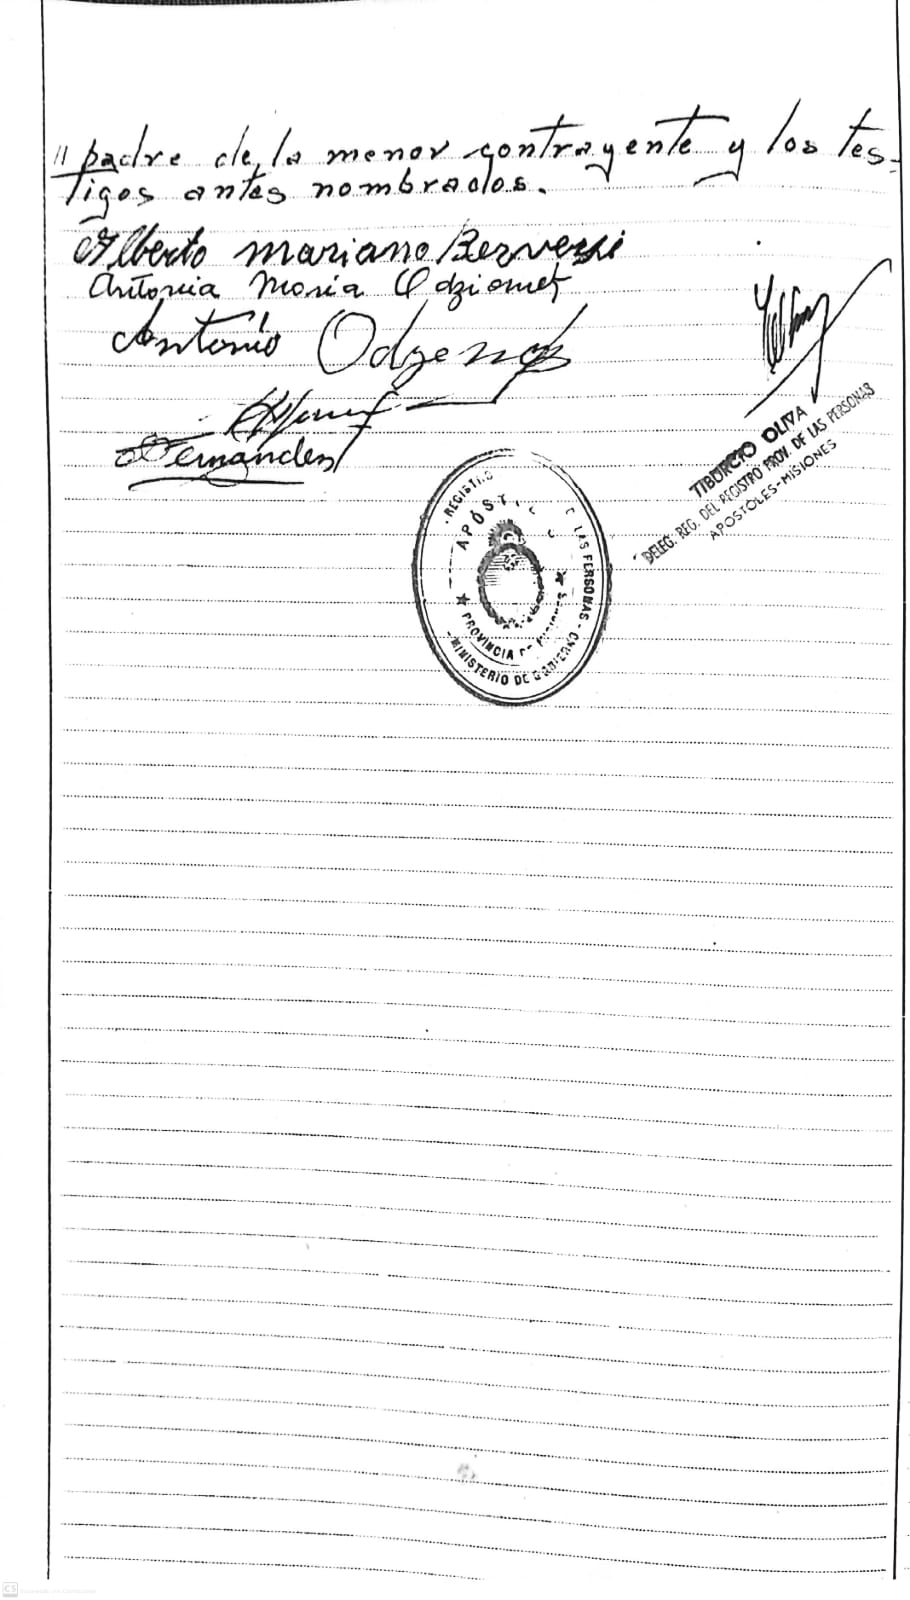 " padre de la menor contrayente y los tes-
tigos antes nombrados.
Alberto Mariano
Antonia Maria
Antonio
Fernández
TIBURCIO OLIVA
DELEG. REG. DEL REGISTRO PROV. DE LAS PERSONAS
APOSTOLES-MISIONES
REGISTRO
DE LAS PERSONAS
APÓSTOLES
PROVINCIA DE MISIONES
MINISTERIO DE GOBIERNO
CS